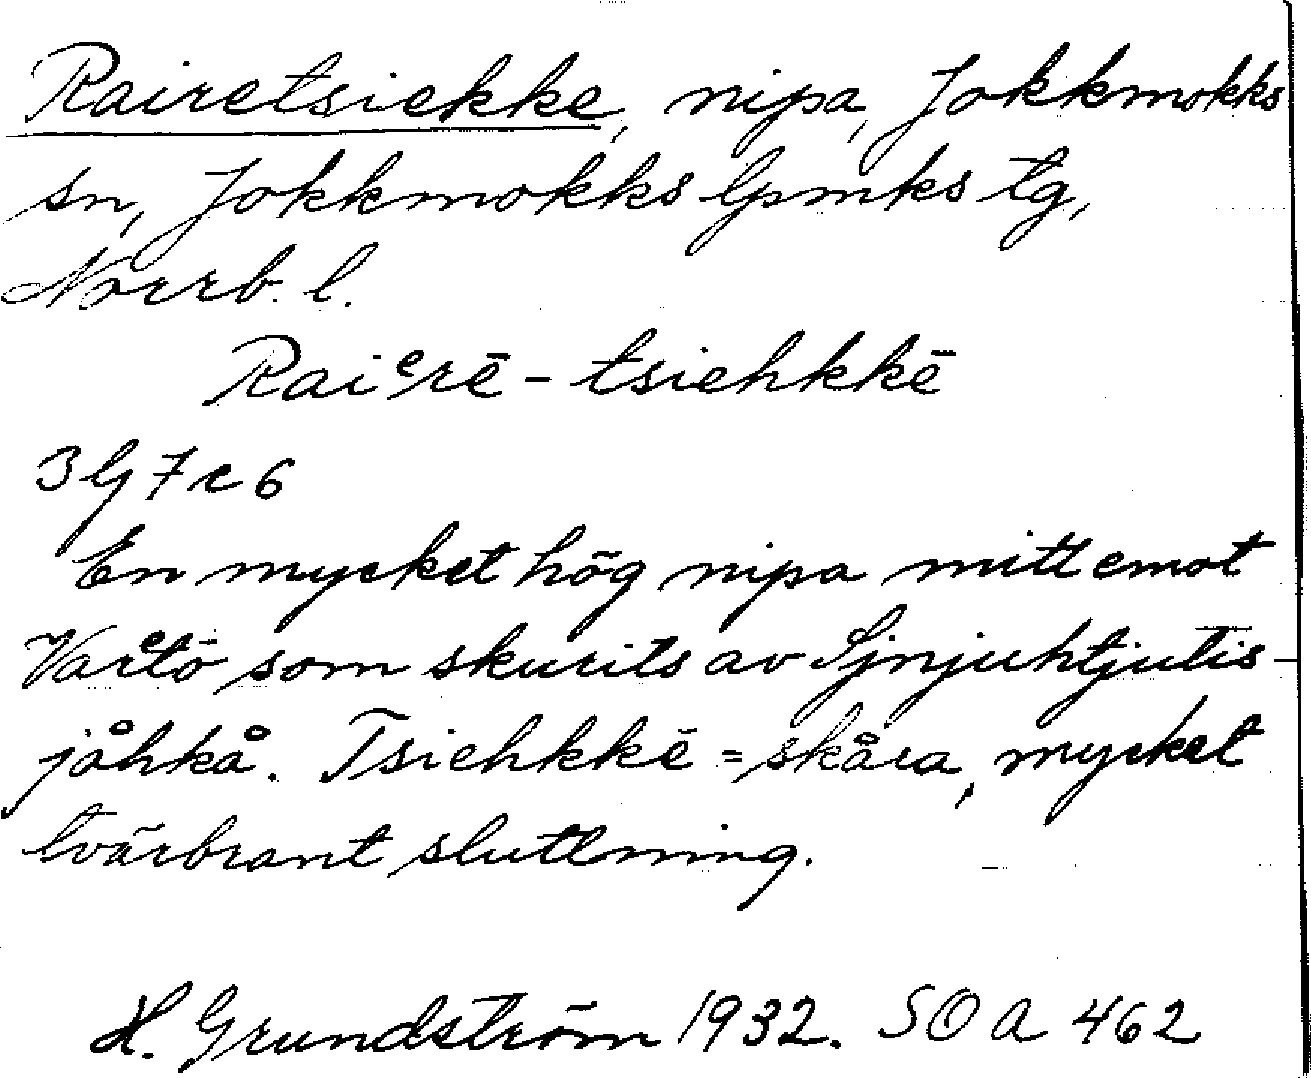 Rairetsiekke, nipa, Jokkmokks
sn, Jokkmokks lpmks tg,
Norrb. l.
Raiᵉrē - tsiehkkē
En mycket hög nipa mitt emot
som skurits av
jåhkå. Tsiehkkē = skåra, mycket
tvärbrant sluttning.
H. Grundström 1932. SOA 462